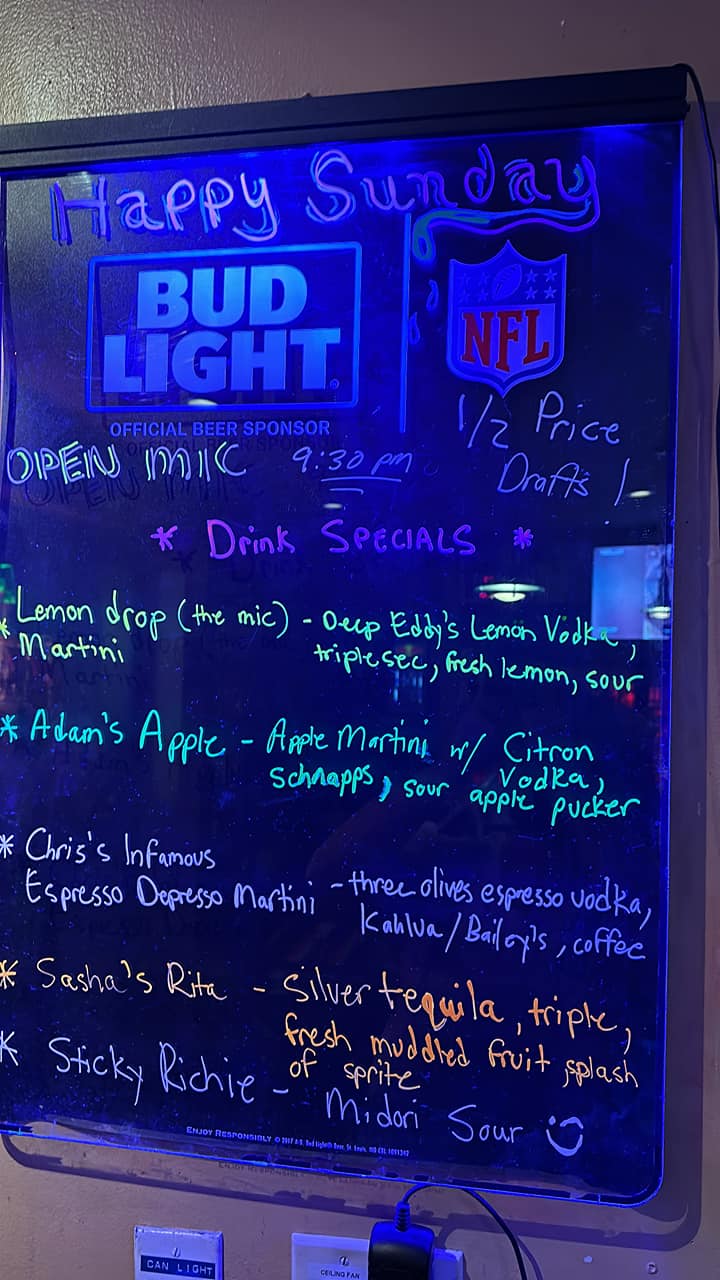 Happy Sunday
BUD
LIGHT
NFL
OFFICIAL BEER SPONSOR
1/2 Price
Drafts!
OPEN MIC 9:30 pm
* Drink SPECIALS *
* Lemon drop (the mic) - Deep Eddy's Lemon Vodka,
Martini triple sec, fresh lemon, sour
* Adam's Apple - Apple Martini w/ Citron
Vodka,
schnapps, sour apple pucker
* Chris's Infamous
Espresso Depresso Martini - three olives espresso vodka,
Kahlua/Bailey's, coffee
* Sasha's Rita - Silver tequila, triple,
fresh muddled fruit splash
of sprite
* Sticky Richie - Midori Sour
ENJOY RESPONSIBLY © 2017 A-B, Bud Light® Beer, St. Louis, MO
CAN LIGHT
CEILING FAN